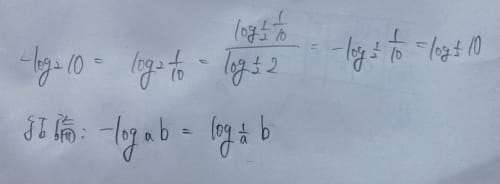 -log₂10 = log₂ 1/10 = (log_{1/2} 1/10)/(log_{1/2} 2) = -log_{1/2} 1/10 = log_{1/2} 10
结论: -log_a b = log_{1/a} b